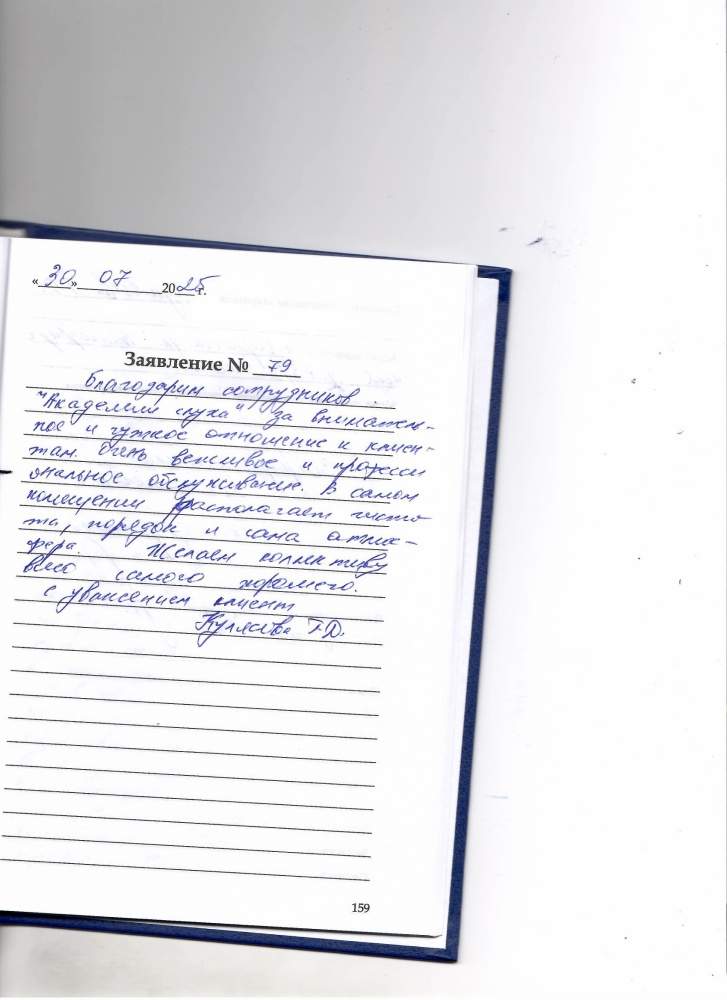 «30» 07 2025 г.
Заявление № 79
Благодарим сотрудников
"Академии слуха" за вниматель-
ное и чуткое отношение к клиен-
там. Очень вежливое и професси
ональное обслуживание. В самом
помещении располагает чисто-
та, порядок и сама атмос-
фера. Желаем коллективу
всего самого хорошего.
С уважением клиент
Г.Д.
159